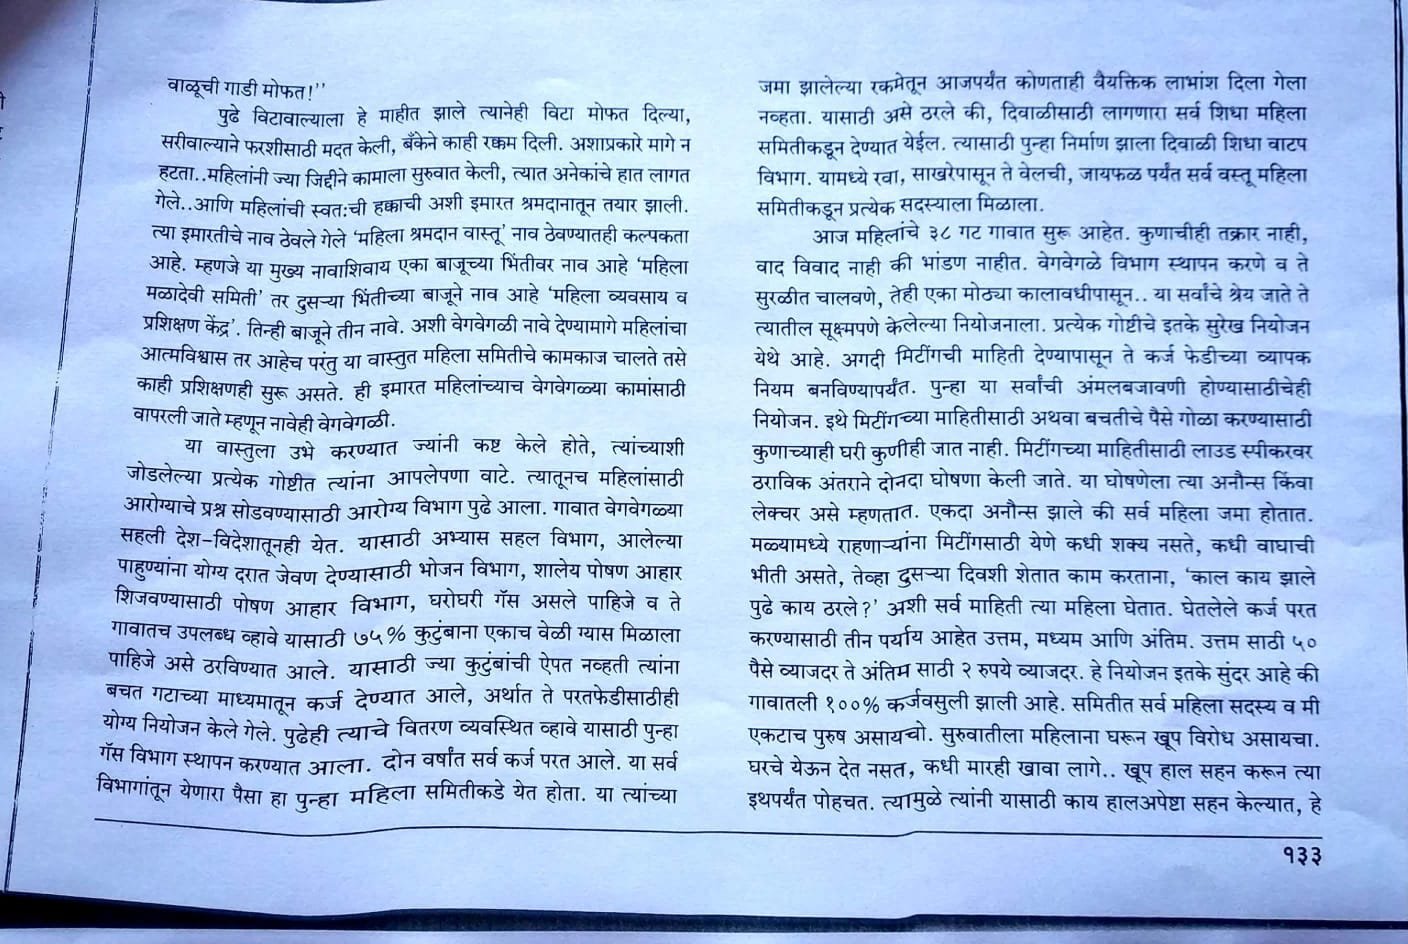 वाळूची गाडी मोफत!''
पुढे विटावाल्याला हे माहीत झाले त्यानेही विटा मोफत दिल्या,
सरीवाल्याने फरशीसाठी मदत केली, बँकेने काही रक्कम दिली. अशाप्रकारे मागे न
हटता..महिलांनी ज्या जिद्दीने कामाला सुरुवात केली, त्यात अनेकांचे हात लागत
गेले..आणि महिलांची स्वतःची हक्काची अशी इमारत श्रमदानातून तयार झाली.
त्या इमारतीचे नाव ठेवले गेले 'महिला श्रमदान वास्तू' नाव ठेवण्यातही कल्पकता
आहे. म्हणजे या मुख्य नावाशिवाय एका बाजूच्या भिंतीवर नाव आहे 'महिला
मळादेवी समिती' तर दुसऱ्या भिंतीच्या बाजूने नाव आहे 'महिला व्यवसाय व
प्रशिक्षण केंद्र'. तिन्ही बाजूने तीन नावे. अशी वेगवेगळी नावे देण्यामागे महिलांचा
आत्मविश्वास तर आहेच परंतु या वास्तुत महिला समितीचे कामकाज चालते तसे
काही प्रशिक्षणही सुरू असते. ही इमारत महिलांच्याच वेगवेगळ्या कामांसाठी
वापरली जाते म्हणून नावेही वेगवेगळी.
या वास्तुला उभे करण्यात ज्यांनी कष्ट केले होते, त्यांच्याशी
जोडलेल्या प्रत्येक गोष्टीत त्यांना आपलेपणा वाटे. त्यातूनच महिलांसाठी
आरोग्याचे प्रश्न सोडवण्यासाठी आरोग्य विभाग पुढे आला. गावात वेगवेगळ्या
सहली देश-विदेशातूनही येत. यासाठी अभ्यास सहल विभाग, आलेल्या
पाहुण्यांना योग्य दरात जेवण देण्यासाठी भोजन विभाग, शालेय पोषण आहार
शिजवण्यासाठी पोषण आहार विभाग, घरोघरी गॅस असले पाहिजे व ते
गावातच उपलब्ध व्हावे यासाठी ७५% कुटुंबाना एकाच वेळी ग्यास मिळाला
पाहिजे असे ठरविण्यात आले. यासाठी ज्या कुटुंबांची ऐपत नव्हती त्यांना
बचत गटाच्या माध्यमातून कर्ज देण्यात आले, अर्थात ते परतफेडीसाठीही
योग्य नियोजन केले गेले. पुढेही त्याचे वितरण व्यवस्थित व्हावे यासाठी पुन्हा
गॅस विभाग स्थापन करण्यात आला. दोन वर्षांत सर्व कर्ज परत आले. या सर्व
विभागांतून येणारा पैसा हा पुन्हा महिला समितीकडे येत होता. या त्यांच्या
जमा झालेल्या रकमेतून आजपर्यंत कोणताही वैयक्तिक लाभांश दिला गेला
नव्हता. यासाठी असे ठरले की, दिवाळीसाठी लागणारा सर्व शिधा महिला
समितीकडून देण्यात येईल. त्यासाठी पुन्हा निर्माण झाला दिवाळी शिधा वाटप
विभाग. यामध्ये रवा, साखरेपासून ते वेलची, जायफळ पर्यंत सर्व वस्तू महिला
समितीकडून प्रत्येक सदस्याला मिळाला.
आज महिलांचे ३८ गट गावात सुरू आहेत. कुणाचीही तक्रार नाही,
वाद विवाद नाही की भांडण नाहीत. वेगवेगळे विभाग स्थापन करणे व ते
सुरळीत चालवणे, तेही एका मोठ्या कालावधीपासून.. या सर्वांचे श्रेय जाते ते
त्यातील सूक्ष्मपणे केलेल्या नियोजनाला. प्रत्येक गोष्टीचे इतके सुरेख नियोजन
येथे आहे. अगदी मिटींगची माहिती देण्यापासून ते कर्ज फेडीच्या व्यापक
नियम बनविण्यापर्यंत. पुन्हा या सर्वांची अंमलबजावणी होण्यासाठीचेही
नियोजन. इथे मिटींगच्या माहितीसाठी अथवा बचतीचे पैसे गोळा करण्यासाठी
कुणाच्याही घरी कुणीही जात नाही. मिटींगच्या माहितीसाठी लाउड स्पीकरवर
ठराविक अंतराने दोनदा घोषणा केली जाते. या घोषणेला त्या अनौन्स किंवा
लेक्चर असे म्हणतात. एकदा अनौन्स झाले की सर्व महिला जमा होतात.
मळ्यामध्ये राहणाऱ्यांना मिटींगसाठी येणे कधी शक्य नसते, कधी वाघाची
भीती असते, तेव्हा दुसऱ्या दिवशी शेतात काम करताना, 'काल काय झाले
पुढे काय ठरले?' अशी सर्व माहिती त्या महिला घेतात. घेतलेले कर्ज परत
करण्यासाठी तीन पर्याय आहेत उत्तम, मध्यम आणि अंतिम. उत्तम साठी ५०
पैसे व्याजदर ते अंतिम साठी २ रुपये व्याजदर. हे नियोजन इतके सुंदर आहे की
गावातली १००% कर्जवसुली झाली आहे. समितीत सर्व महिला सदस्य व मी
एकटाच पुरुष असायचो. सुरुवातीला महिलाना घरून खूप विरोध असायचा.
घरचे येऊन देत नसत, कधी मारही खावा लागे.. खूप हाल सहन करून त्या
इथपर्यंत पोहचत. त्यामुळे त्यांनी यासाठी काय हालअपेष्टा सहन केल्यात, हे
१३३